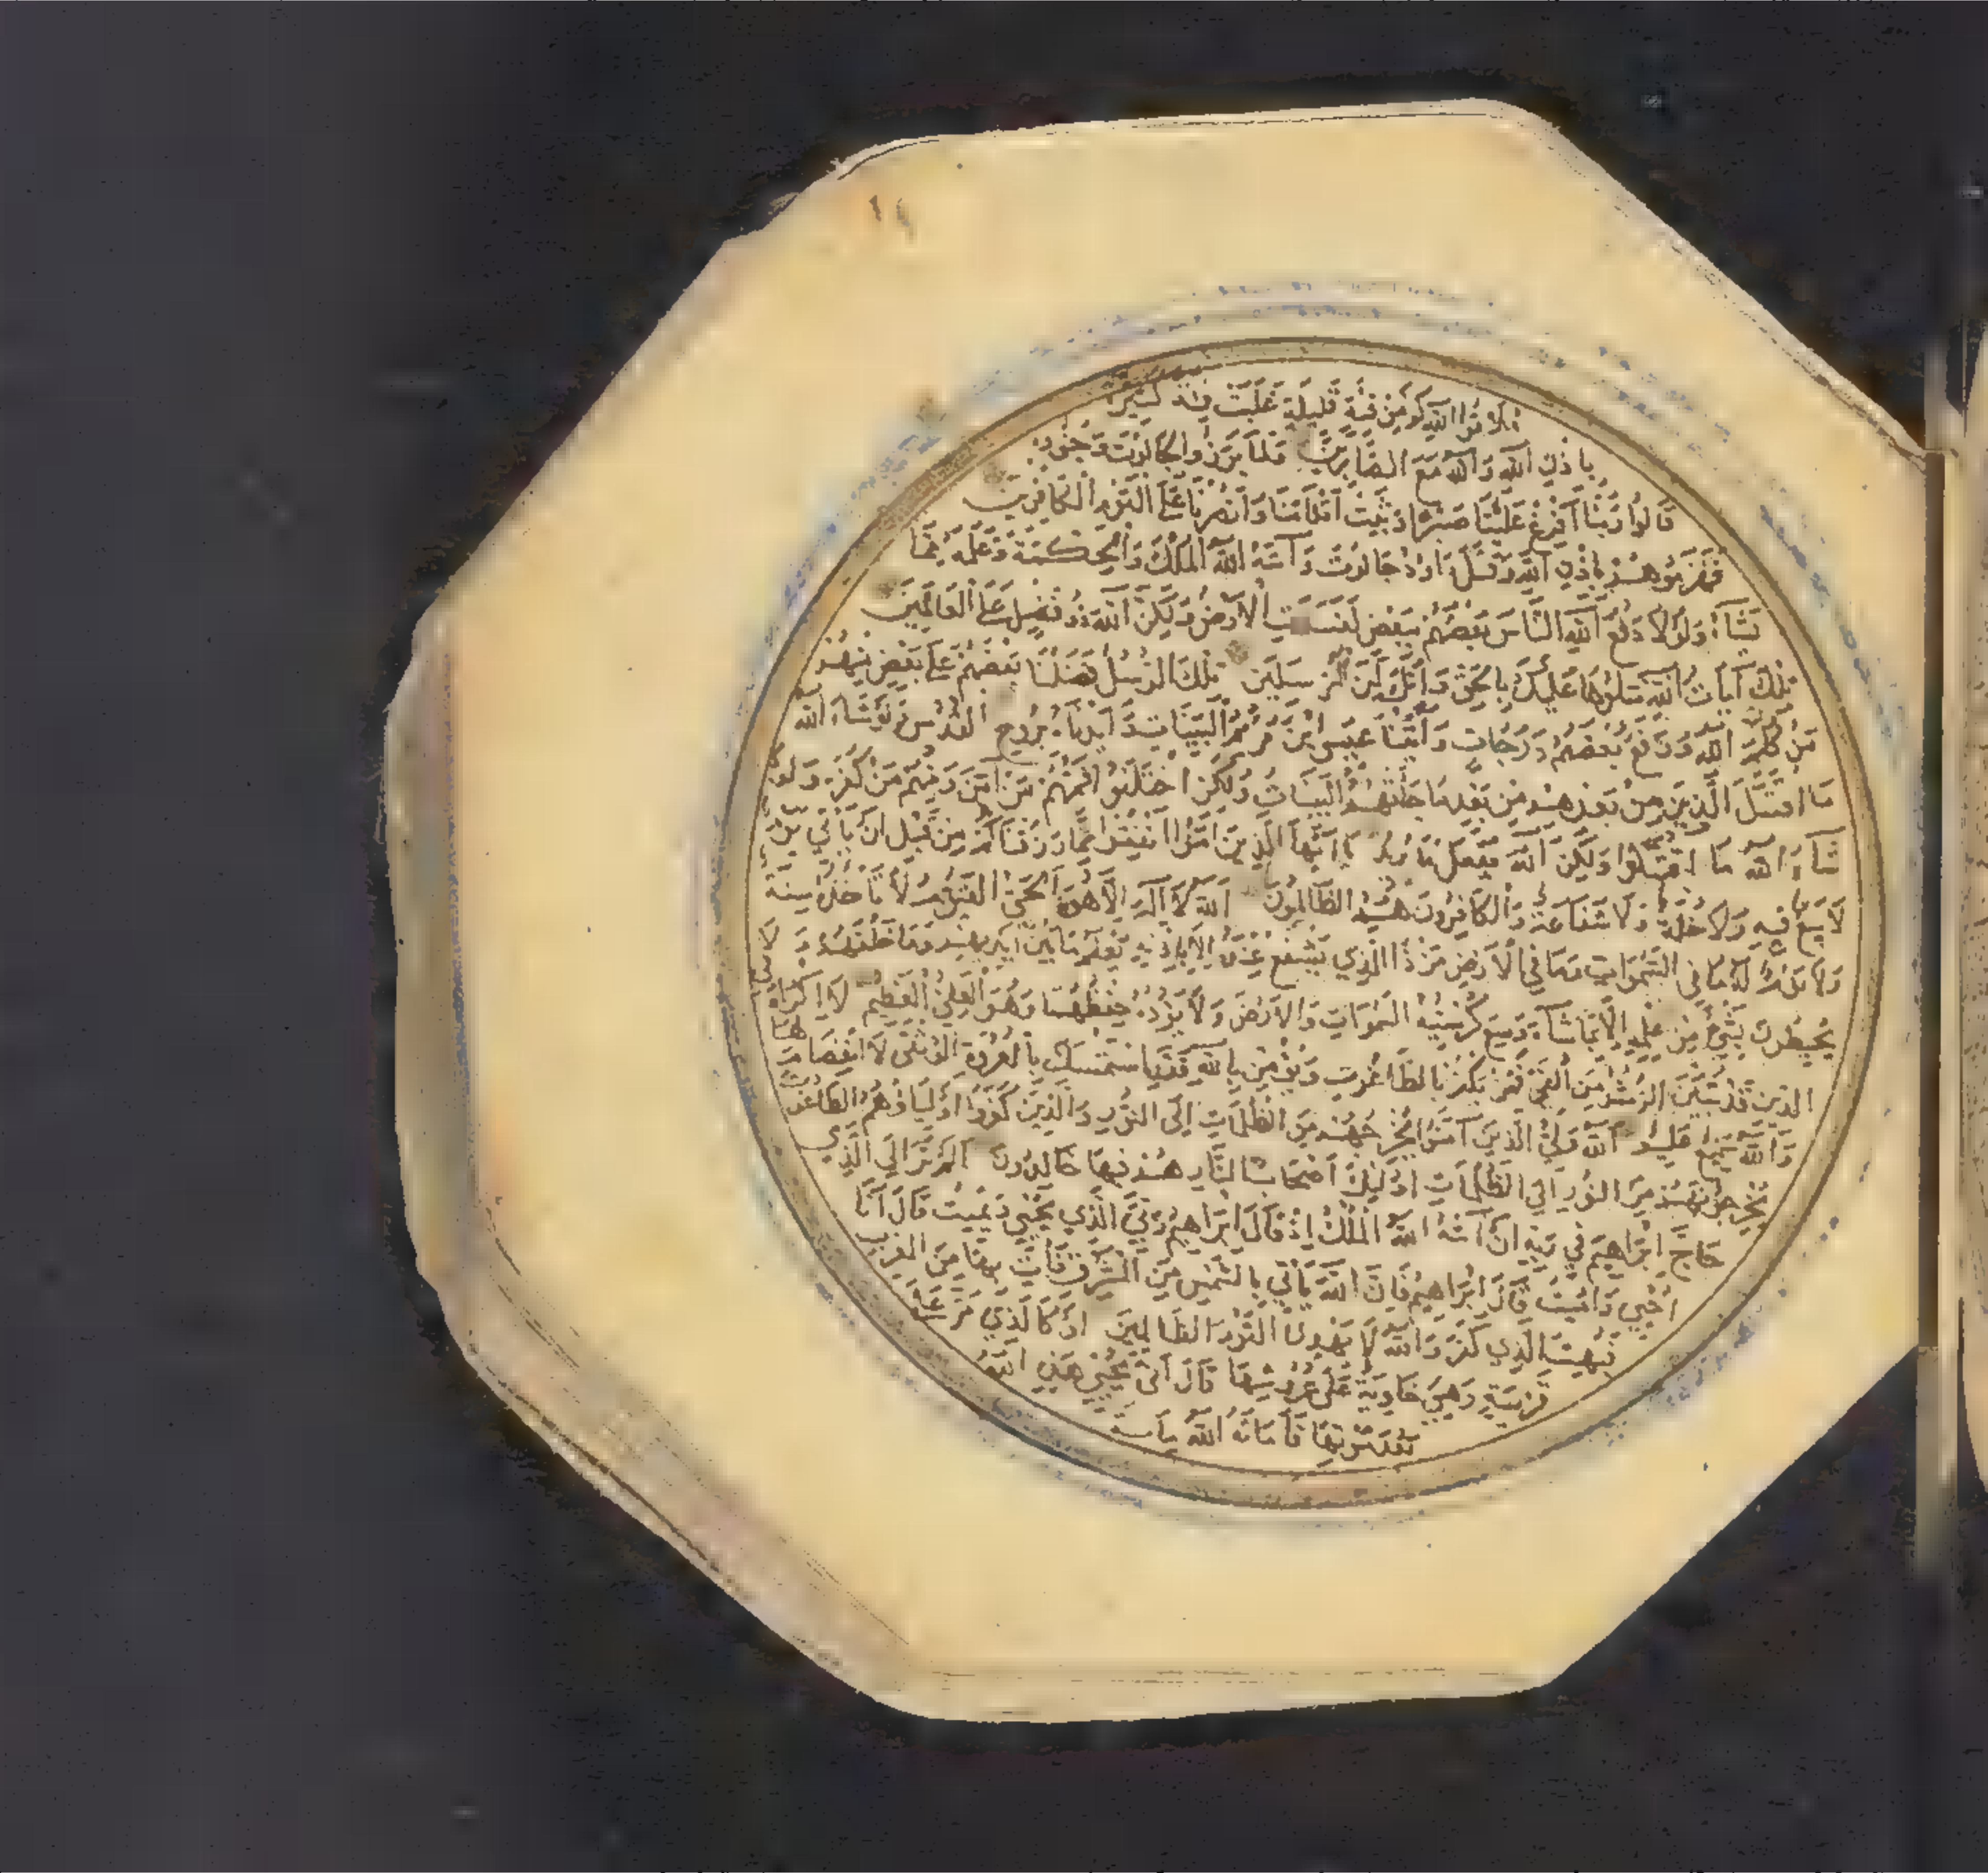 ملاقوا الله كم من فئة قليلة غلبت فئة كثيرة
باذن الله والله مع الصابرين فلما برزوا لجالوت وجنوده
قالوا ربنا افرغ علينا صبرا وثبت اقدامنا وانصرنا على القوم الكافرين
فهزموهم باذن الله وقتل داود جالوت وآتيه الله الملك والحكمة وعلمه مما
يشآء ولولا دفع الله الناس بعضهم ببعض لفسدت الارض ولكن الله ذو فضل على العالمين
تلك آيات الله نتلوها عليك بالحق وانك لمن المرسلين تلك الرسل فضلنا بعضهم على بعض منهم
من كلم الله ورفع بعضهم درجات وآتينا عيسى ابن مريم البينات وايدناه بروح القدس ولو شاء الله
ما اقتتل الذين من بعدهم من بعد ما جائتهم البينات ولكن اختلفوا فمنهم من آمن ومنهم من كفر ولو
شآء الله ما اقتتلوا ولكن الله يفعل ما يريد يا ايها الذين آمنوا انفقوا مما رزقناكم من قبل ان ياتي يوم
لا بيع فيه ولا خلة ولا شفاعة والكافرون هم الظالمون الله لا اله الا هو الحي القيوم لا تاخذه سنة
ولا نوم له ما في السموات وما في الارض من ذا الذي يشفع عنده الا باذنه يعلم ما بين ايديهم وما خلفهم ولا
يحيطون بشيء من علمه الا بما شآء وسع كرسيه السموات والارض ولا يؤده حفظهما وهو العلي العظيم لا اكراه في
الدين قد تبين الرشد من الغي فمن يكفر بالطاغوت ويؤمن بالله فقد استمسك بالعروة الوثقى لا انفصام لها
والله سميع عليم الله ولي الذين آمنوا يخرجهم من الظلمات الى النور والذين كفروا اولياؤهم الطاغوت
يخرجونهم من النور الى الظلمات اولئك اصحاب النار هم فيها خالدون الم تر الى الذي
حاج ابراهيم في ربه ان آتيه الله الملك اذ قال ابراهيم ربي الذي يحيي ويميت قال انا
احيي واميت قال ابراهيم فان الله ياتي بالشمس من المشرق فات بها من المغرب
فبهت الذي كفر والله لا يهدي القوم الظالمين او كالذي مر على
قرية وهي خاوية على عروشها قال انى يحيي هذه الله
بعد موتها فاماته الله مأة